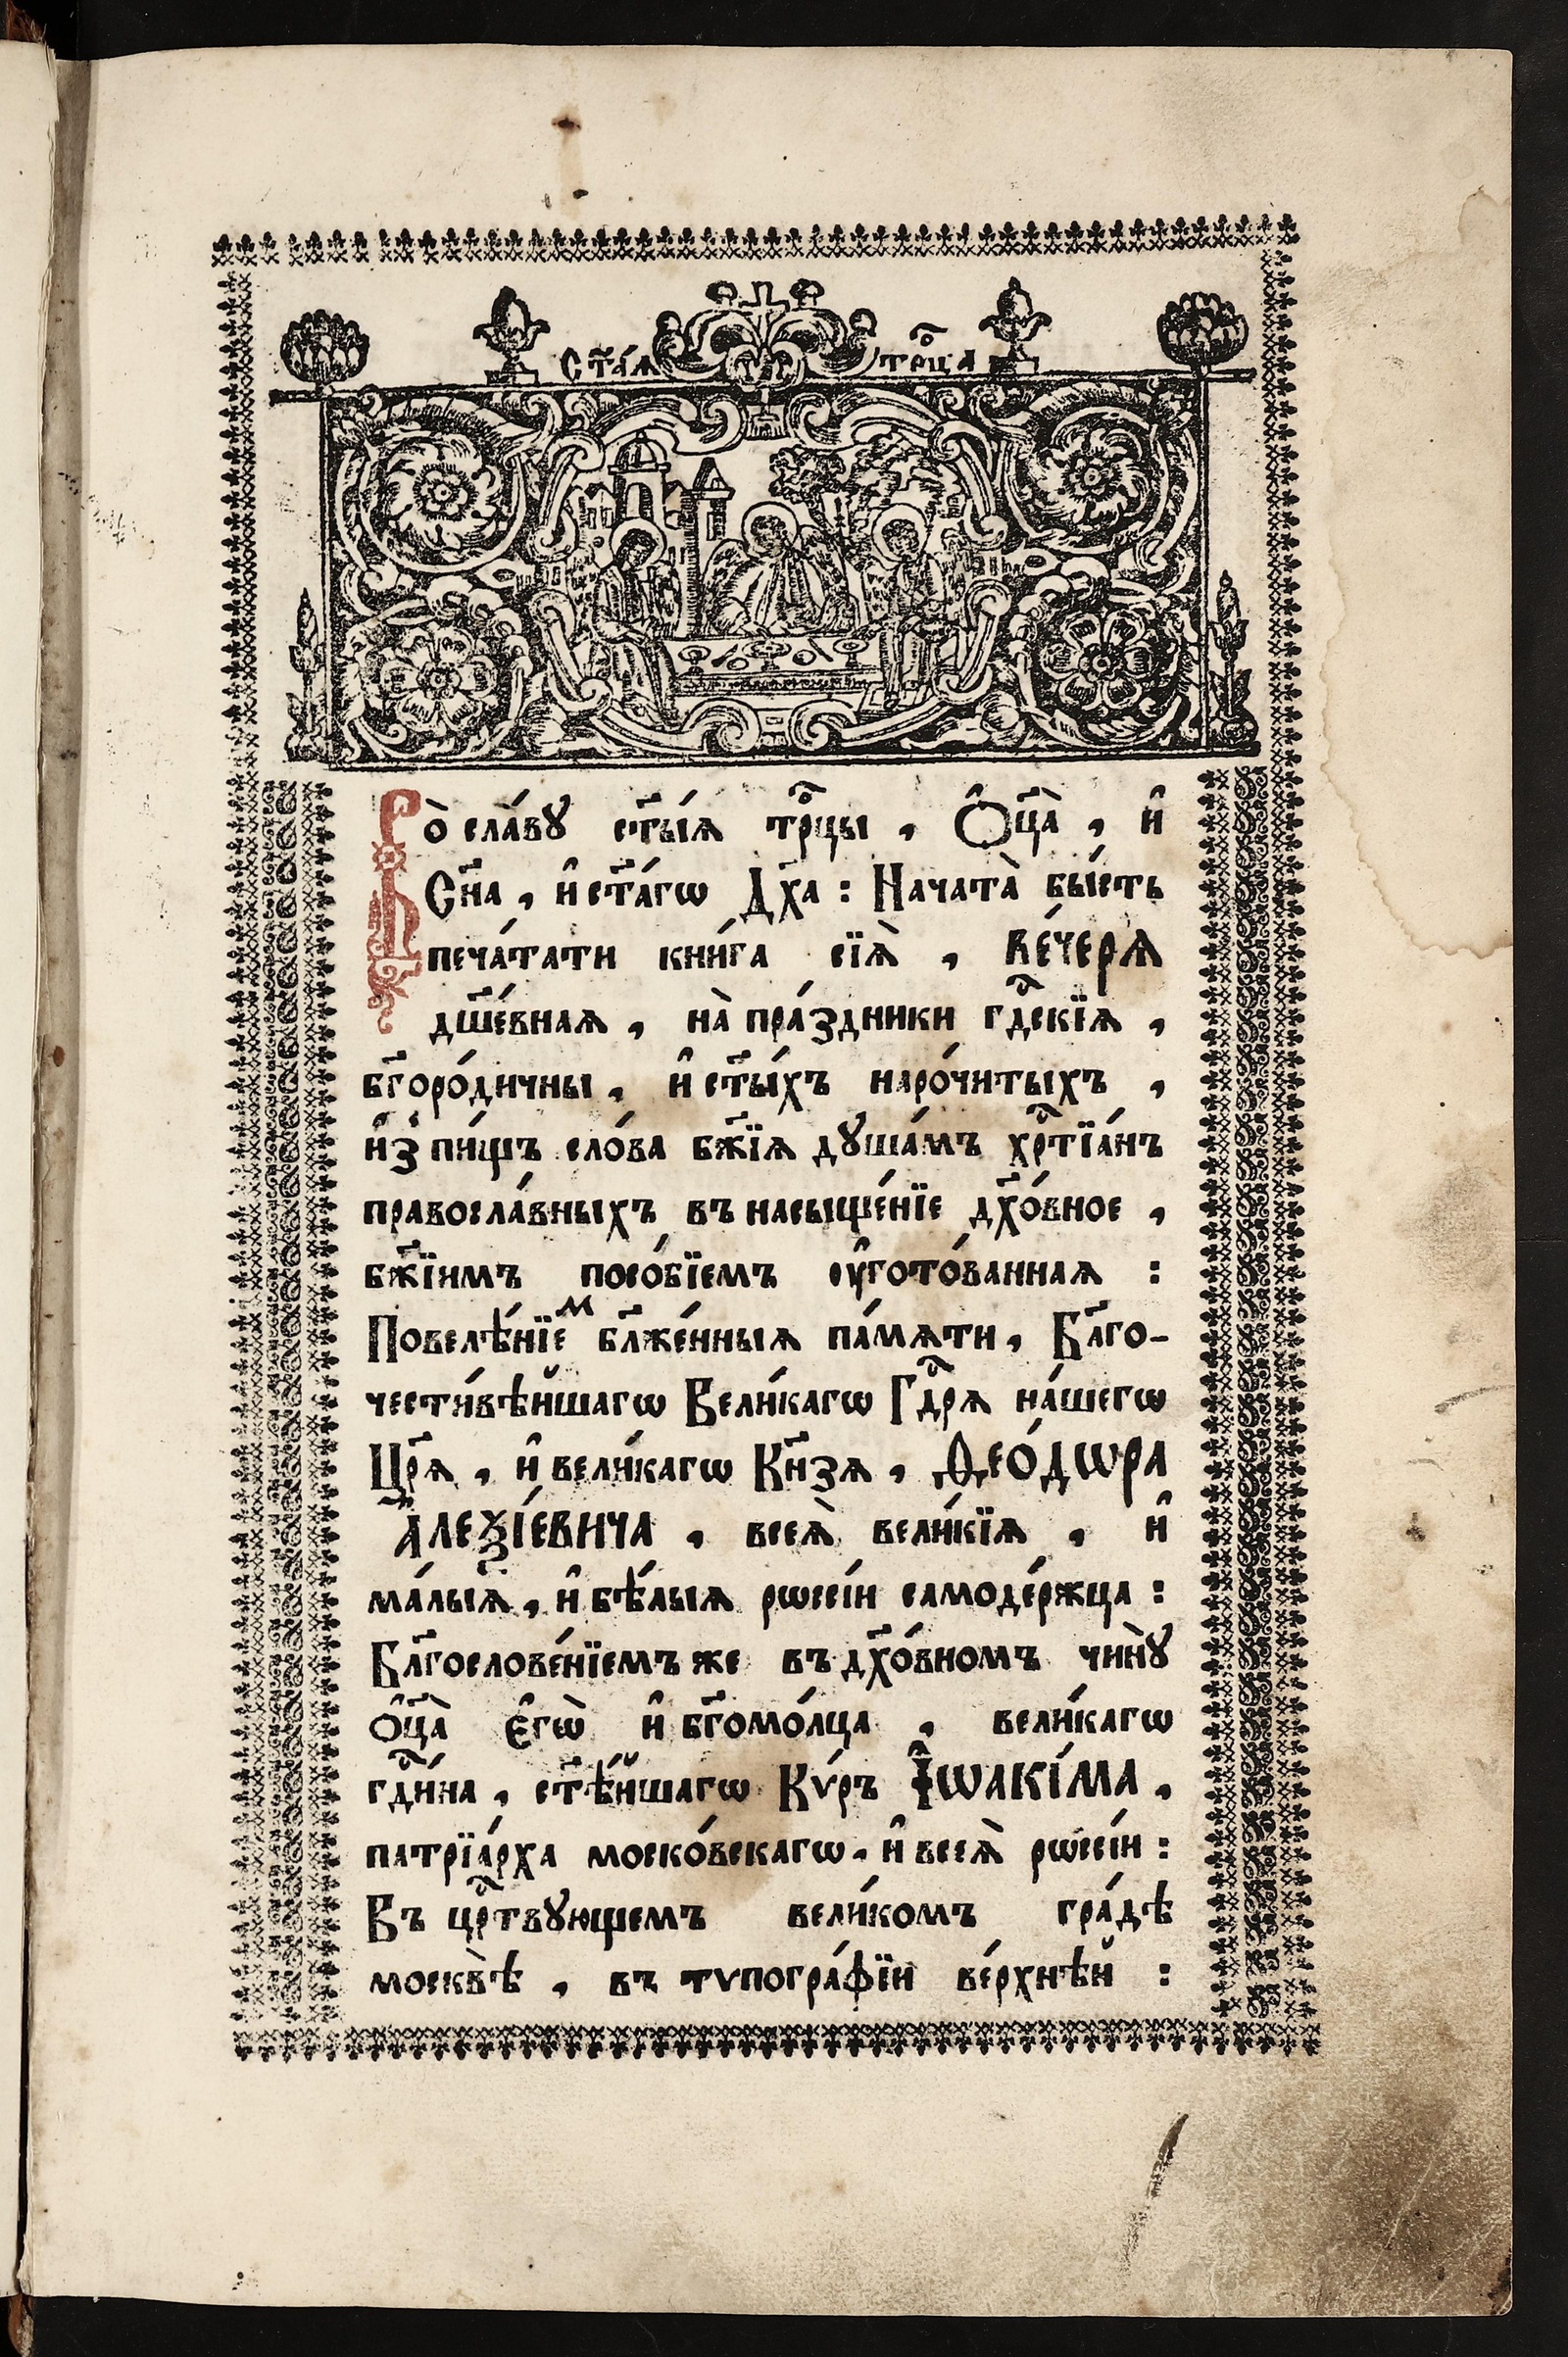 С҃та́ѧ трⷪ҇ца
Во̀ сла́вꙋ ст҃ы́ѧ трⷪ҇цы , Ѻ҆ц҃а̀ , и҆
Сн҃а , и҆ ст҃а́гѡ Дх҃а : Начата̀ бы́сть
печа́тати кни́га сїѧ̀ , Вече́рѧ
дш҃е́внаѧ , на̀ пра́здники гдⷭ҇кїѧ ,
бг҃оро́дичны , и҆ ст҃ы́хъ наро́читыхъ ,
и҆з̾ пи́щъ сло́ва бж҃їѧ дꙋша́мъ хрⷭ҇тїа́нъ
правосла́вныхъ въ насыще́нїе дх҃о́вное ,
бж҃їимъ посо́бїемъ ᲂу҆гото́ваннаѧ :
Повелѣ́нїеⷨ бл҃же́нныѧ па́мѧти , Бл҃го-
чести́вѣйшагѡ Вели́кагѡ Гдⷭ҇рѧ на́шегѡ
Цр҃ѧ , и҆ вели́кагѡ Кн҃зѧ , Ѳео́дѡра
А҆леѯі́евича , всеѧ̀ вели́кїѧ , и҆
ма́лыѧ , и҆ бѣ́лыѧ рѡссі́и самоде́ржца :
Бл҃гослове́нїемъ же въ дх҃о́вномъ чинꙋ̀
ѻ҆ц҃а̀ є҆гѡ̀ и҆ бг҃омо́лца , вели́кагѡ
гдⷭ҇и́на , ст҃ѣ́йшагѡ Кѵ́ръ І҆ѡакі́ма ,
патрїа́рха моско́вскагѡ , и҆ всеѧ̀ рѡссі́и :
Въ црⷭ҇твꙋющемъ вели́комъ гра́дѣ
москвѣ̀ , въ тѵпогра́фїи ве́рхнѣй :